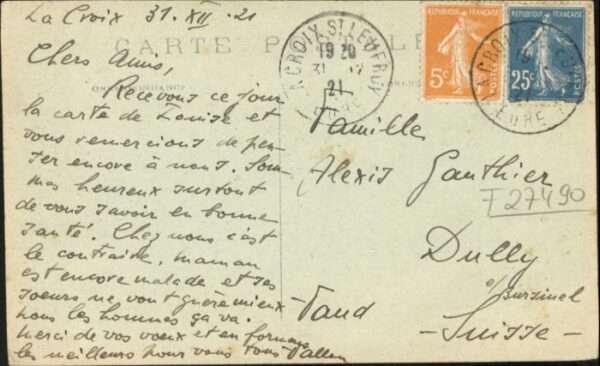 La Croix 31. XII. 21
CARTE POSTALE
Chers Amis,
Recevons ce jour
la carte de Louise et
vous remercions de pen-
ser encore à nous. Som-
mes heureux surtout
de vous savoir en bonne
santé. Chez nous c'est
le contraire, maman
est encore malade et ses
soeurs ne vont guère mieux
nous les hommes ça va.
Merci de vos voeux et en formons
les meilleurs pour vous tous
LA CROIX ST LEUFROY
19 20
31 12
21
EURE
5c
RÉPUBLIQUE FRANÇAISE
POSTES
25c
Famille
Alexis Gauthier
F 27490
Dully
s/Bursinel
Vaud
- Suisse -